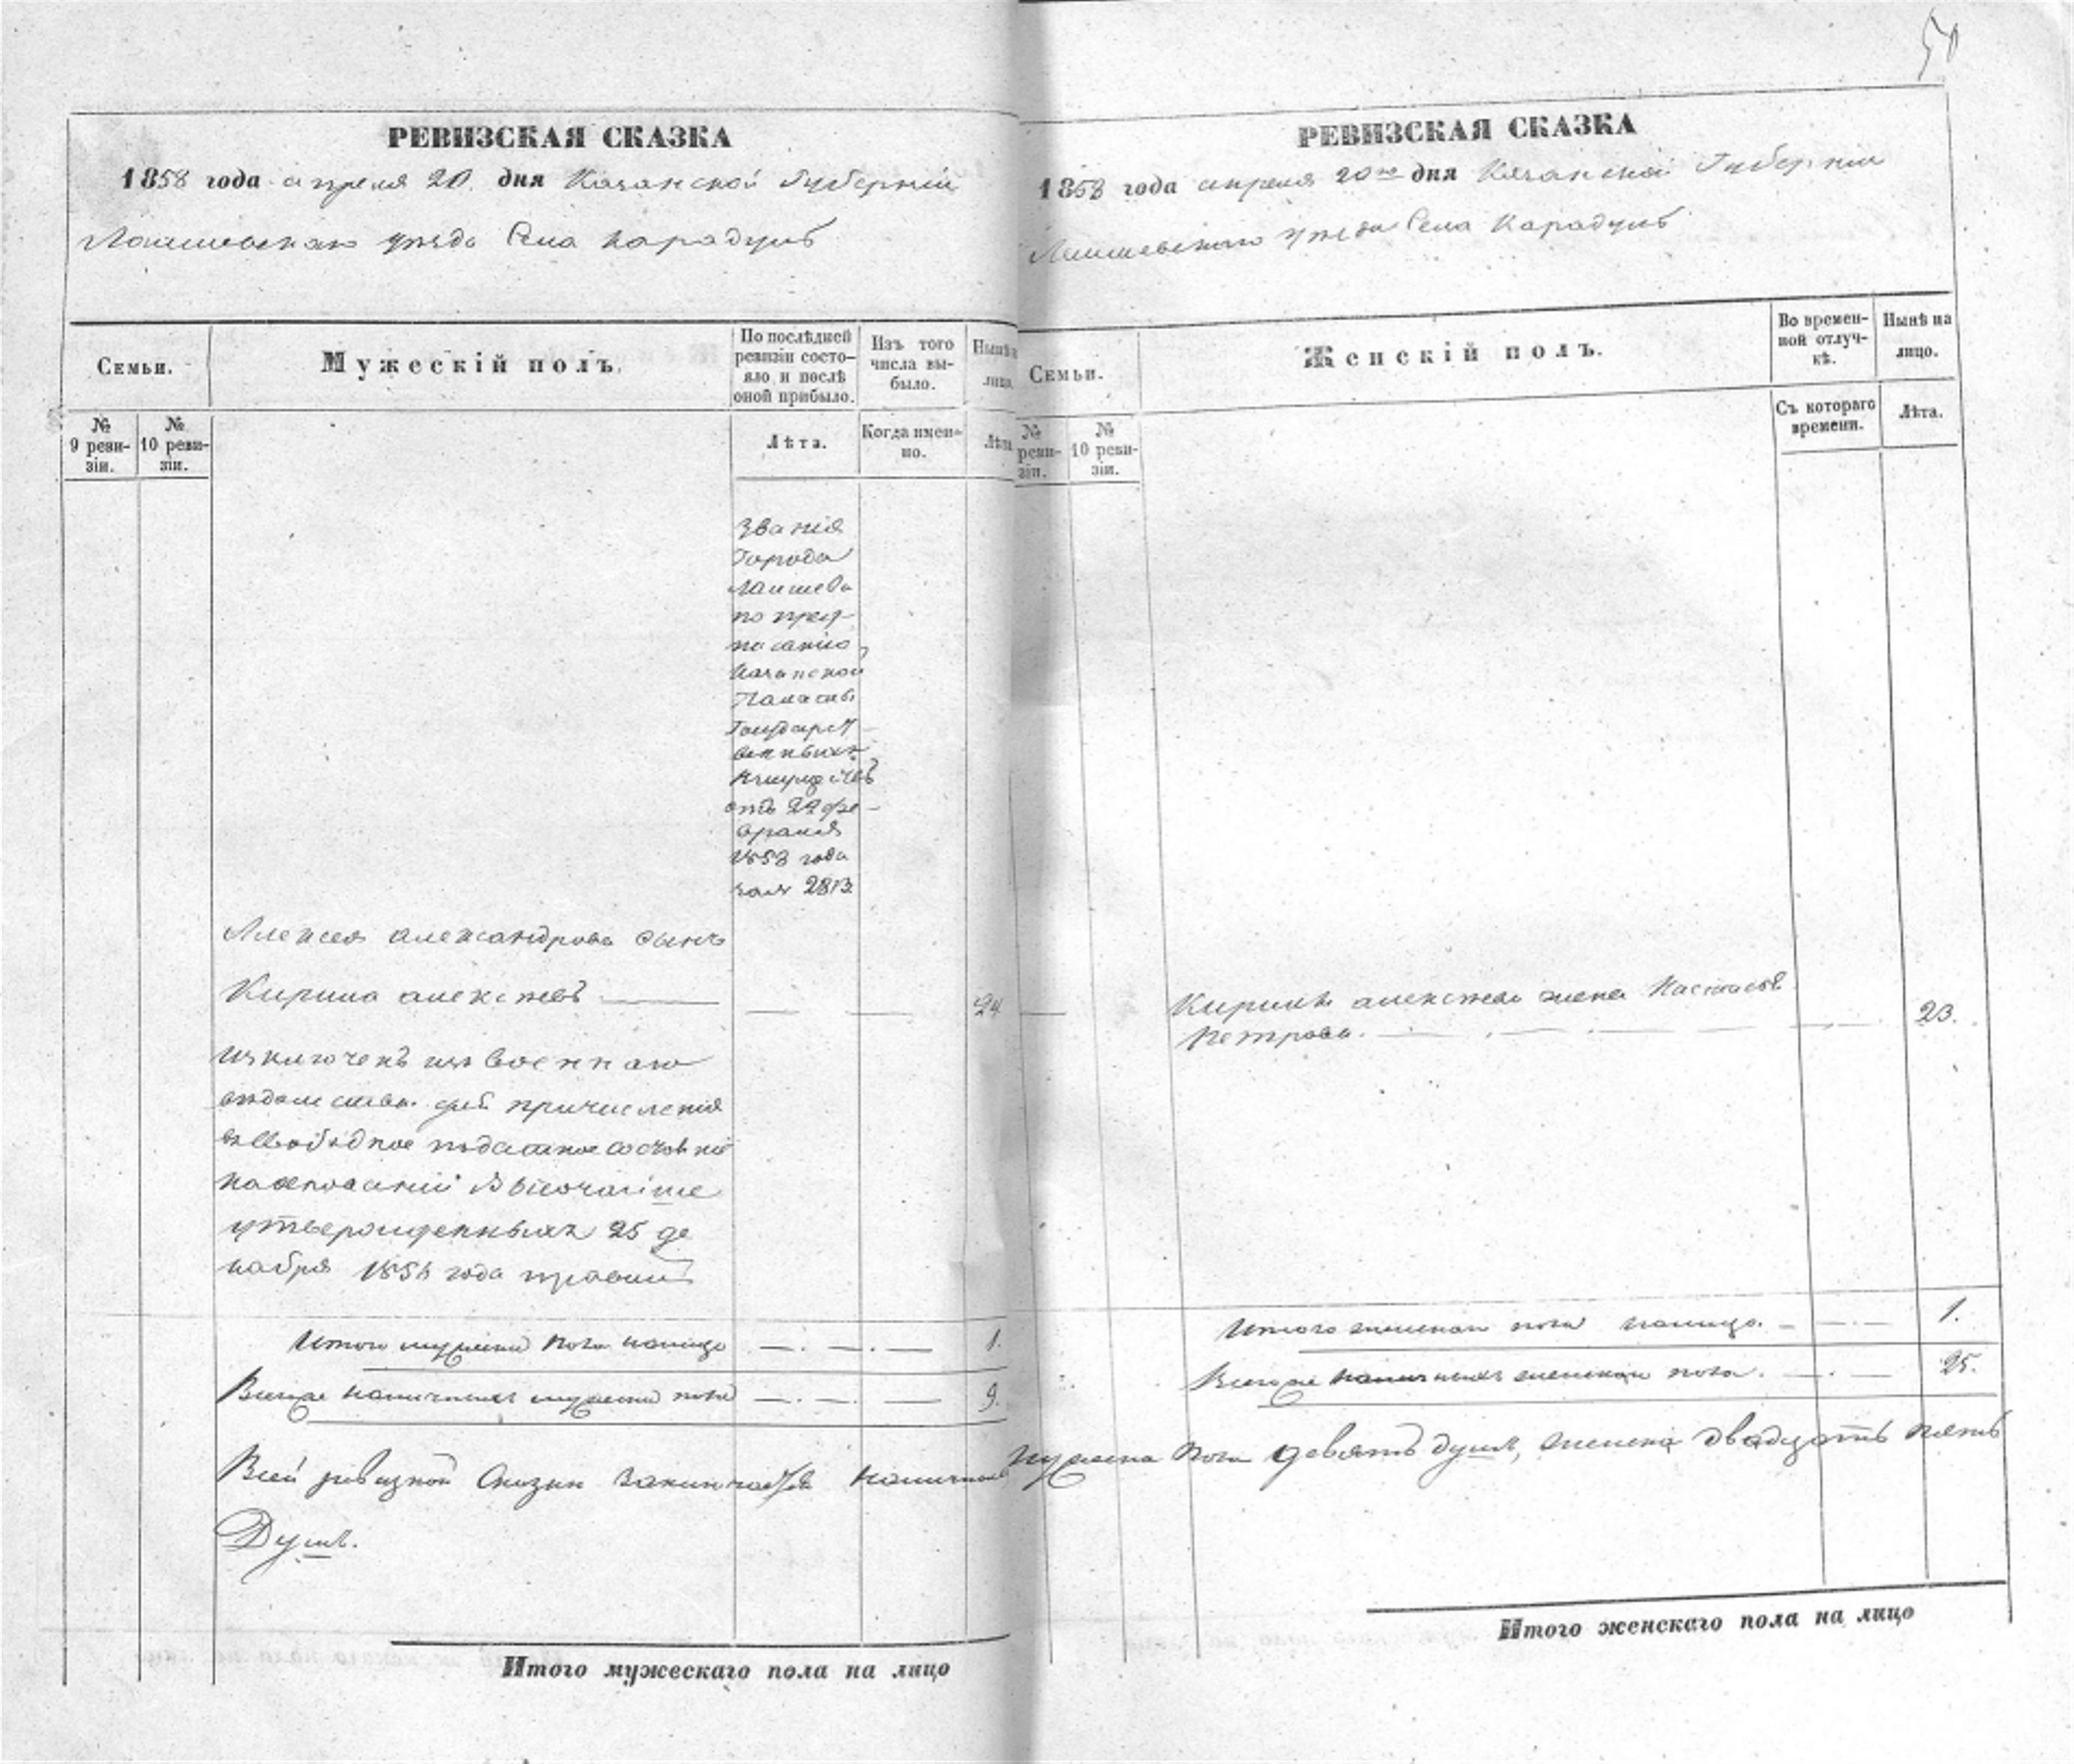 50
РЕВИЗСКАЯ СКАЗКА
1858 года апреля 20 дня Казанской Губерніи
Лаишевскаго уѣзда Села Карадулъ
Семьи.
Мужескій полъ.
По послѣдней ревизіи состояло и послѣ оной прибыло.
Изъ того числа выбыло.
Нынѣ на лицо.
№ 9 ревизіи.
№ 10 ревизіи.
Лѣта.
Когда именно.
Лѣта
званія
Города
Лаишева
по пред-
писанію
Казанской
Палаты
Государст-
венныхъ
Имуществъ
отъ 22 фе-
враля
1858 года
за № 2813
Алексея александрова сынъ
Кирила алексѣевъ
24
Изключенъ изъ военнаго
вѣдомства для причисленія
въ свободное податное состояніе
на основаніи Высочайше
утвержденныхъ 25 де
кабря 1856 года правилъ
Итого мужеска пола налицо 1.
Всего же наличныхъ мужеска пола 9.
Всей ревизкой Сказки заключается наличныхъ
Душъ.
Итого мужескаго пола на лицо
РЕВИЗСКАЯ СКАЗКА
1858 года апреля 20го дня Казанской Губерніи
Лаишевскаго уѣзда Села Карадулъ
Семьи.
Женскій полъ.
Во временной отлучкѣ.
Нынѣ на лицо.
№ ревизіи.
№ 10 ревизіи.
Съ котораго времени.
Лѣта.
Кирилы алексѣева жена Настасья
Петрова. 23.
Итого женскаго пола налицо. 1.
Всего же наличныхъ женскаго пола. 25.
мужеска пола девять душъ, женска двадцать пять
Итого женскаго пола на лицо